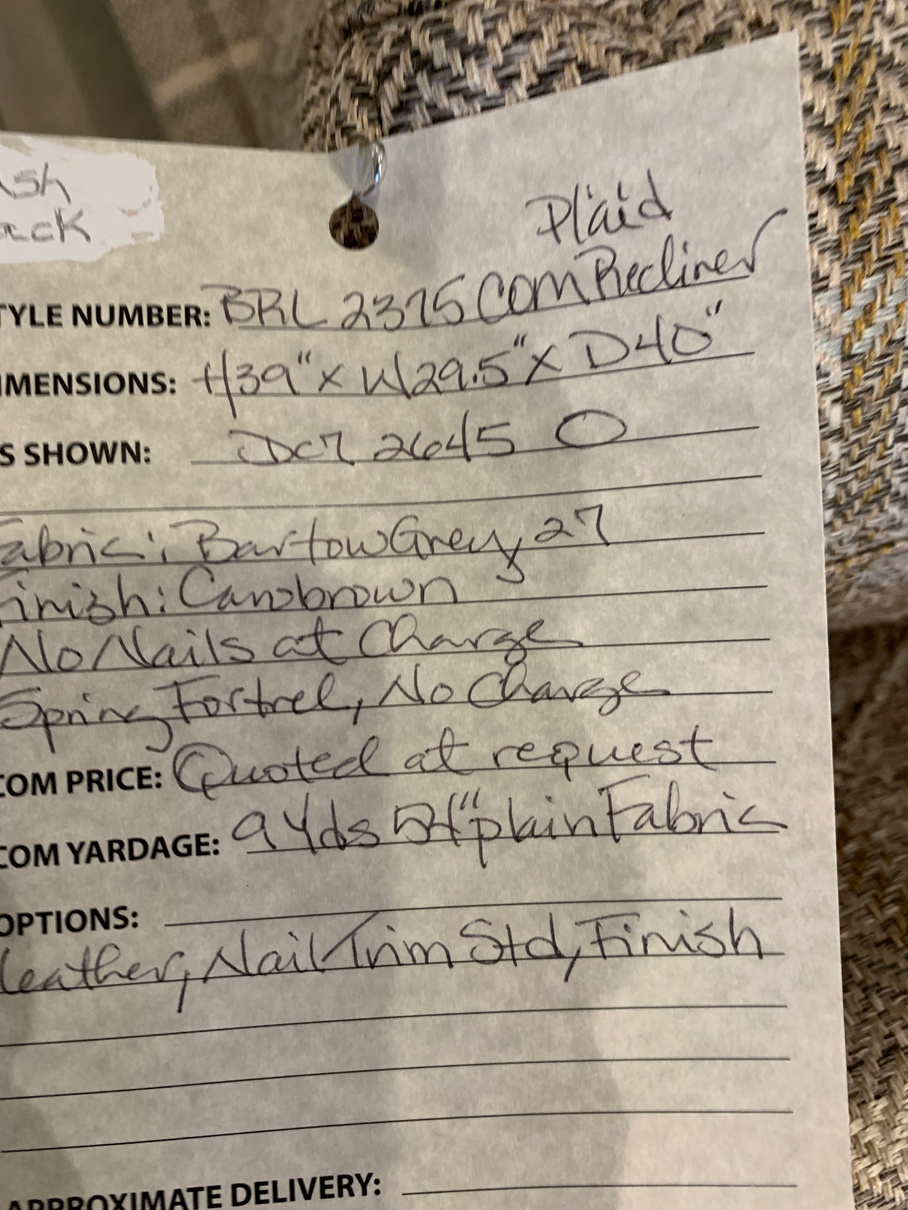 ash
ack
Plaid
TYLE NUMBER: BRL 2375 COM Recliner
IMENSIONS: H39" x W29.5" x D40"
S SHOWN: 2645
abric: Bartow Grey 27
inish: Canobrown
No Nails at Charge
Spring Fortrel, No Charge
COM PRICE: Quoted at request
COM YARDAGE: 9 Yds 54" plain Fabric
OPTIONS:
Leather, Nail Trim Std, Finish
APPROXIMATE DELIVERY: